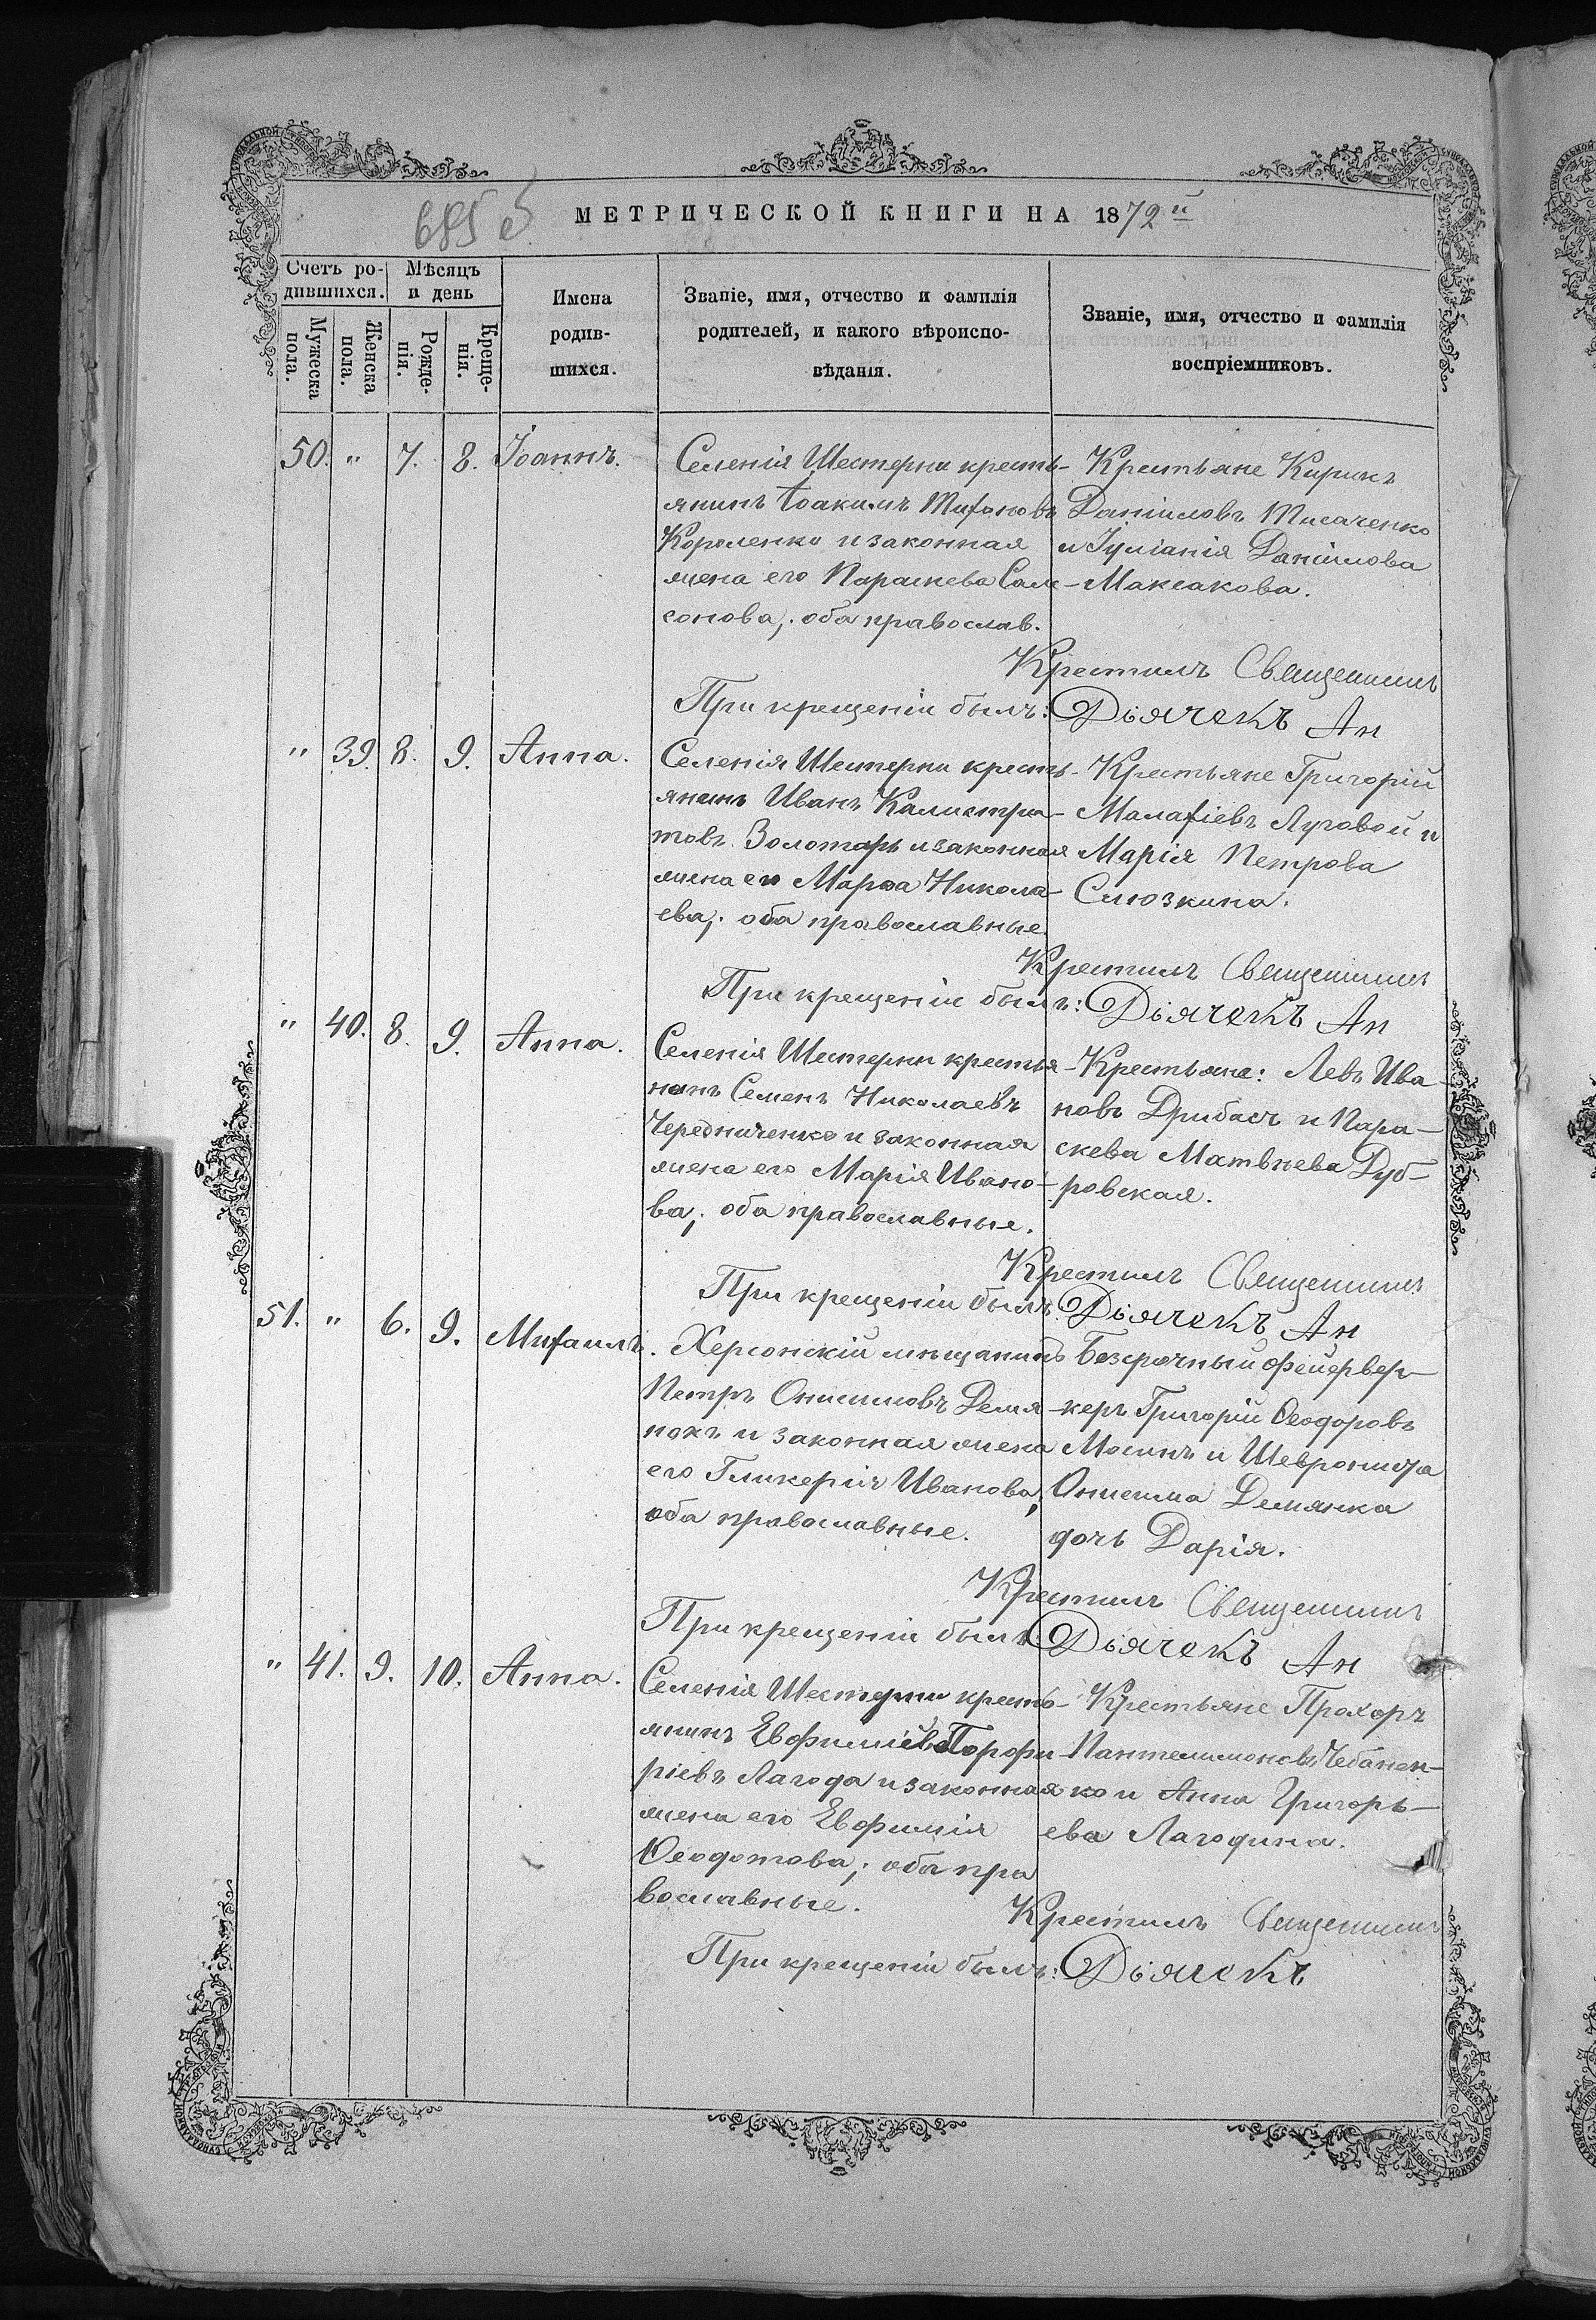 685 об
МЕТРИЧЕСКОЙ КНИГИ НА 1872 й
Счетъ ро-
дившихся.
Мѣсяцъ
и день
Мужеска
пола.
Женска
пола.
Рожде-
нія.
Креще-
нія.
Имена
родив-
шихся.
Званіе, имя, отчество и фамилія
родителей, и какого вѣроиспо-
вѣданія.
Званіе, имя, отчество и фамилія
воспріемниковъ.
50. " 7. 8. Іоаннъ.
Селенія Шестерни кресть-
янинъ Іоакимъ Тихоновъ
Короленко и законная
жена его Параскева Сам-
сонова; оба православ.
Крестьяне Кирикъ
Даніиловъ Тисаченко
и Іуліанія Даніилова
Максакова.
Крестилъ Священникъ
При крещеніи былъ: Дьячекъ Ан
" 39. 8. 9. Анна.
Селенія Шестерни кресть-
янинъ Иванъ Калистра-
товъ Золотарь и законная
жена его Марѳа Никола-
ева; оба православные.
Крестьяне Григорій
Малахіевъ Луговой и
Марія Петрова
Слюзкина.
Крестилъ Священникъ
При крещеніи былъ: Дьячекъ Ан
" 40. 8. 9. Анна.
Селенія Шестерни крестья-
нинъ Семенъ Николаевъ
Чередниченко и законная
жена его Марія Ивано-
ва; оба православные.
Крестьяне: Левъ Ива-
новъ Дрибасъ и Пара-
скева Матвѣева Дуб-
ровская.
Крестилъ Священникъ
При крещеніи былъ: Дьячекъ Ан
51. " 6. 9. Михаилъ.
Херсонскій мѣщанинъ
Петръ Онисимовъ Демя-
нокъ и законная жена
его Гликерія Иванова;
оба православные.
Безсрочный фейервер-
керъ Григорій Ѳеодоровъ
Мосинъ и Шевронища
Онисима Демянка
дочь Дарія.
Крестилъ Священникъ
При крещеніи былъ: Дьячекъ Ан
" 41. 9. 10. Анна.
Селенія Шестерни кресть-
янинъ Евфимій Порфи-
ріевъ Лагода и законная
жена его Евфимія
Ѳеодотова; оба пра
вославные.
Крестьяне Прохоръ
Пантелимоновъ Чебанен-
ко и Анна Григорь-
ева Лагодина.
Крестилъ Священникъ
При крещеніи былъ: Дьячекъ